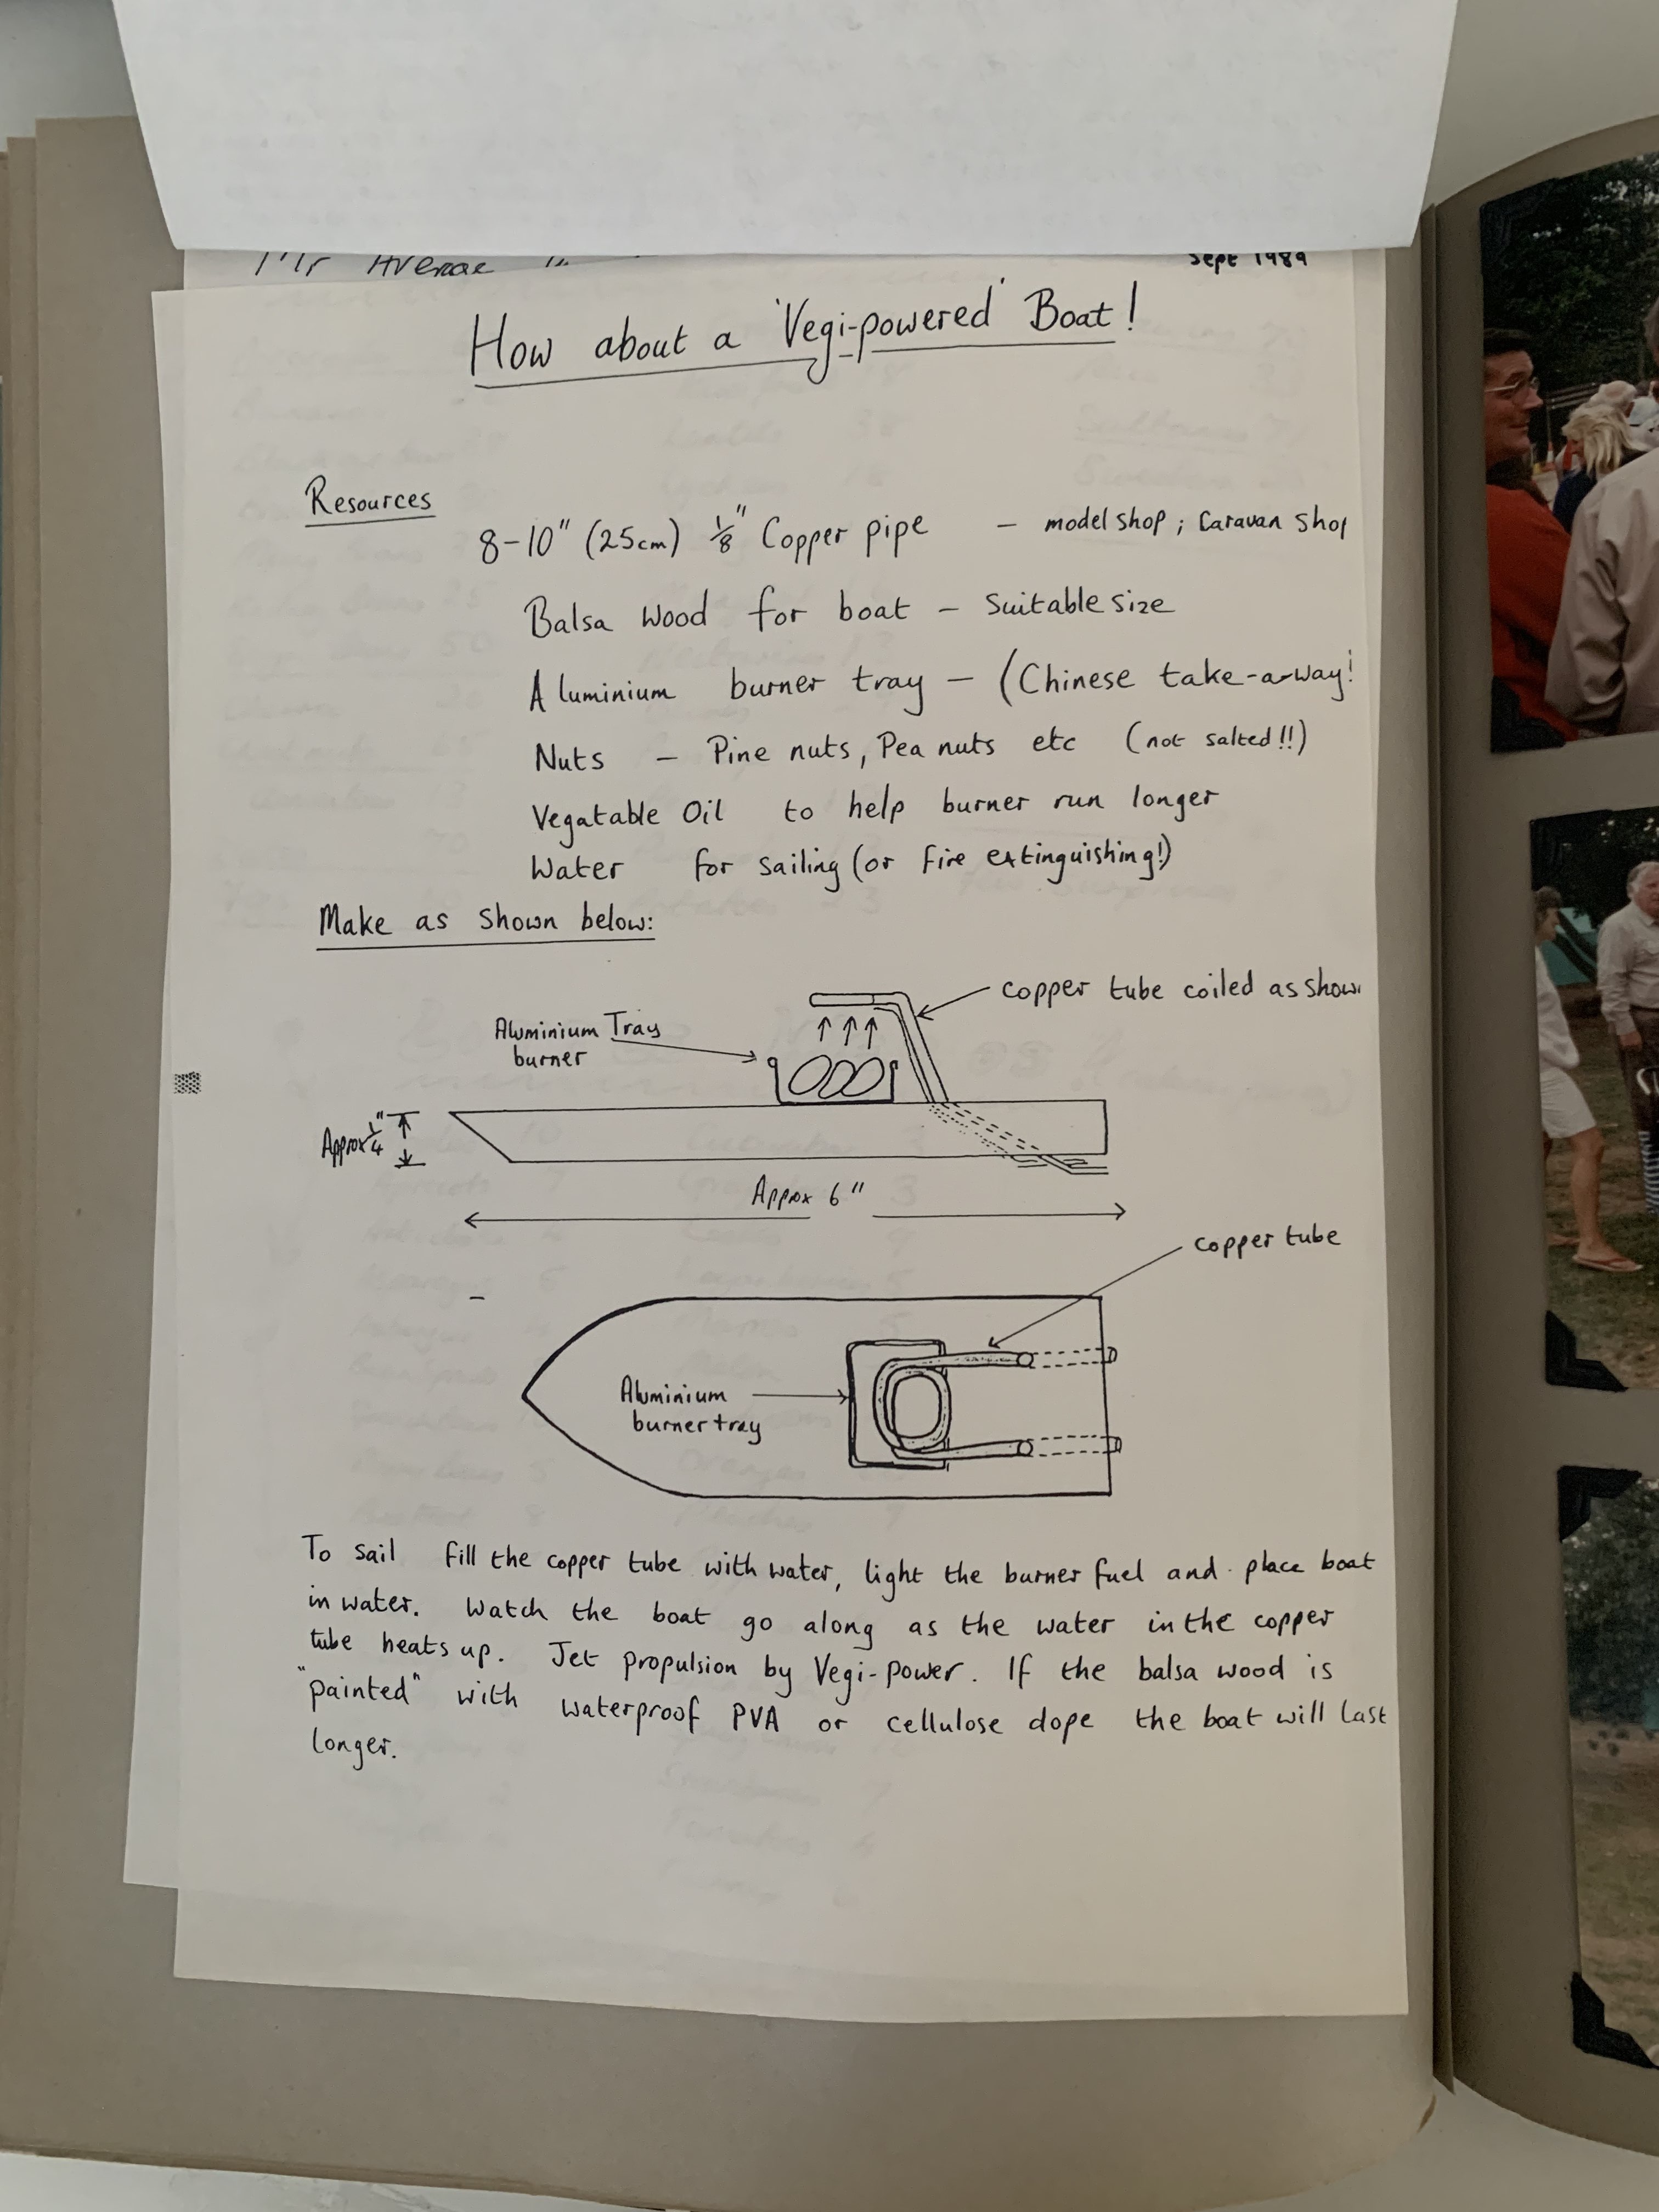 Mr Average
Sept 1989
How about a 'Vegi-powered' Boat!
Resources
8-10" (25cm) 1/8" Copper pipe - model shop; Caravan Shop
Balsa wood for boat - suitable size
Aluminium burner tray - (Chinese take-a-way!
Nuts - Pine nuts, Pea nuts etc (not salted!!)
Vegatable Oil to help burner run longer
Water for sailing (or fire extinguishing!)
Make as shown below:
copper tube coiled as show
Aluminium Tray
burner
Approx 1/4"
Approx 6"
copper tube
Aluminium
burner tray
To sail fill the copper tube with water, light the burner fuel and place boat
in water. Watch the boat go along as the water in the copper
tube heats up. Jet propulsion by Vegi-power. If the balsa wood is
"painted" with waterproof PVA or cellulose dope the boat will last
longer.